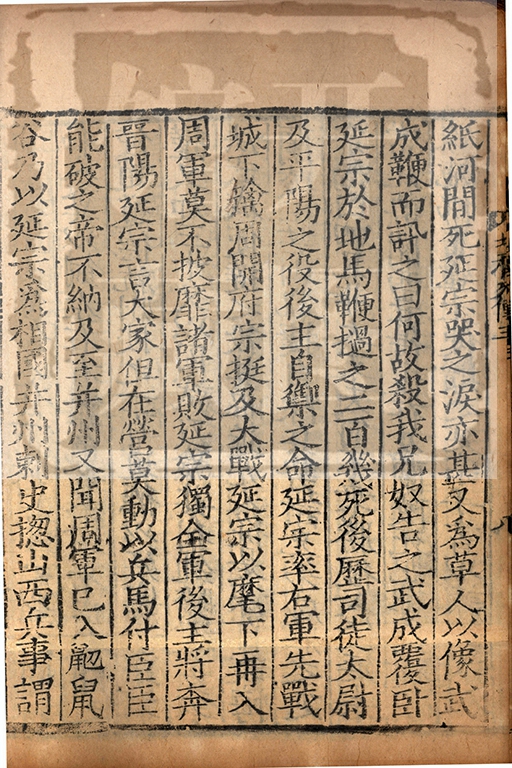 紙河間死延宗哭之淚亦甚又爲草人以像武
成鞭而訊之曰何故殺我兄奴告之武成覆臥
延宗於地馬鞭撾之二百幾死後歷司徒太尉
及平陽之役後主自禦之命延宗率右軍先戰
城下擒周開府宗挺及大戰延宗以麾下再入
周軍莫不披靡諸軍敗延宗獨全軍後主將奔
晉陽延宗言大家但在營莫動以兵馬付臣臣
能破之帝不納及至并州又聞周軍已入鼪鼠
谷乃以延宗爲相國并州刺史揔山西兵事謂